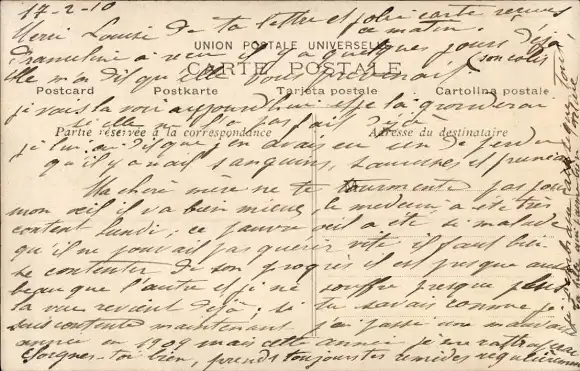 17-2-10
Merci Louise de ta lettre et jolie carte reçues
ce matin.
UNION POSTALE UNIVERSELLE
CARTE POSTALE
a reçu il y a quelques jours déjà
son colis
Elle m'a dit que elle vous
Postcard Postkarte Tarjeta postale Cartolina postale
je vais la voir aujourd'hui et je la gronderai
si elle ne l'a pas fait déjà
Partie réservée à la correspondance Adresse du destinataire
je lui ai dis que j'en avais eu un de perdu
qu'il y avait sanguins, saucisses et
Ma chère mère ne te tourmente pas pour
mon œil il va bien mieux, le médecin a été très
content lundi; ce pauvre œil a été si malade
qu'il ne pouvait pas guérir vite il faut bien
se contenter de son progrès il est presque aussi
beau que l'autre et je ne souffre presque plus
la vue revient déjà; si tu savais comme je
suis contente maintenant j'ai passé une mauvaise
année en 1909 mais cette année je me
Soignes-toi bien, prends toujours tes remèdes régulièrement